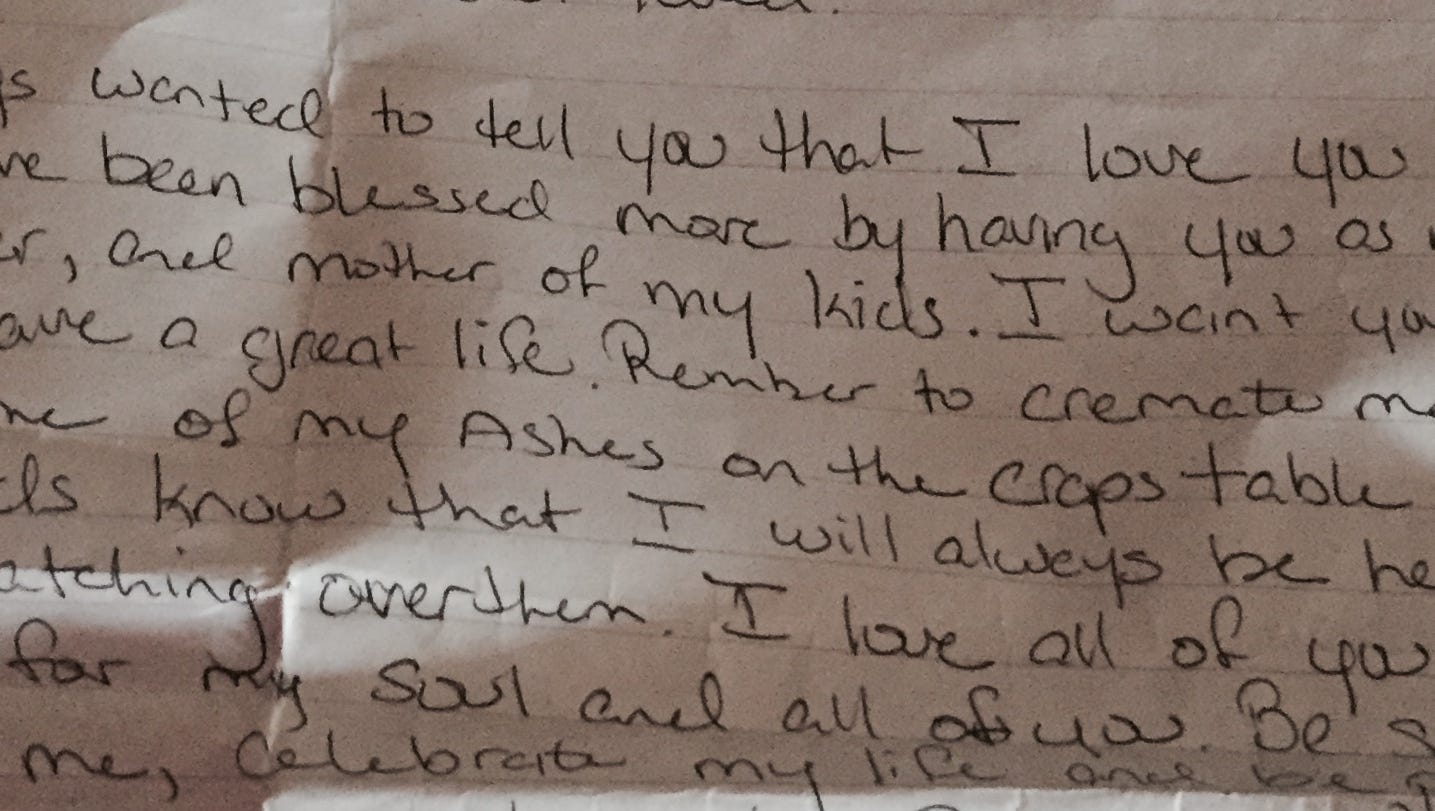 wanted to tell you that I love you
been blessed more by having you as
and mother of my kids. I want
a great life. Rember to cremate
of my Ashes on the craps table
know that I will always be
over them. I love all of you
for my soul and all of you. Be
me, Celebrate my life and be